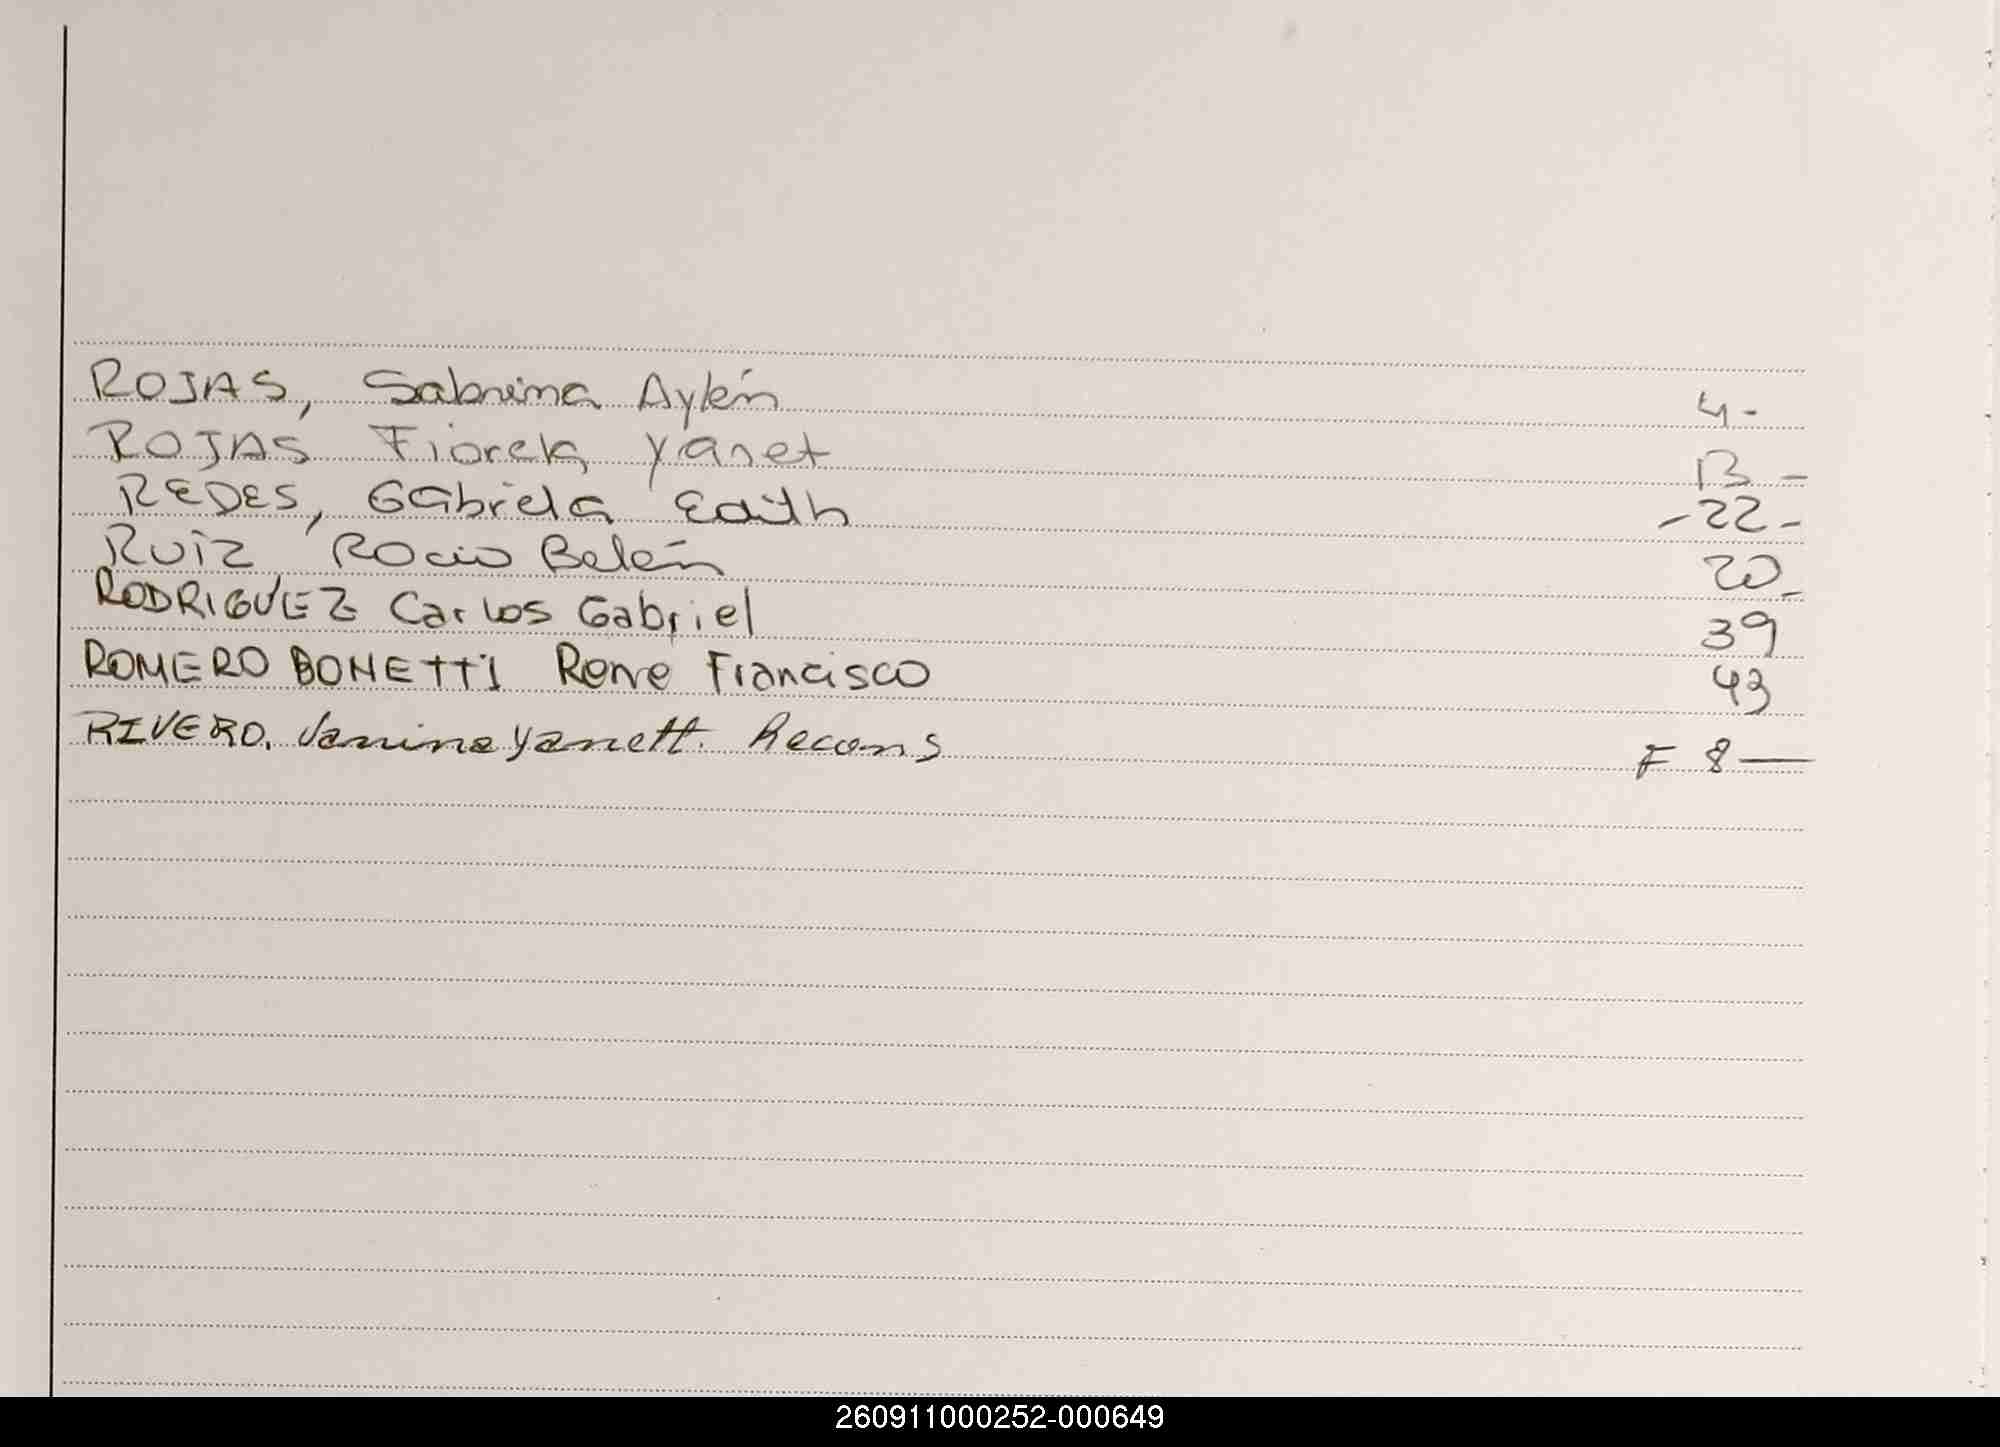 ROJAS, Sabrina Aylén 4-
ROJAS Fiorela Yanet 13-
REDES, Gabriela Edith -22-
RUIZ Rocio Belén 20-
RODRIGUEZ Carlos Gabriel 39
ROMERO BONETTI Rene Francisco 43
RIVERO. Janina Yanett. Recons F 8—
260911000252-000649